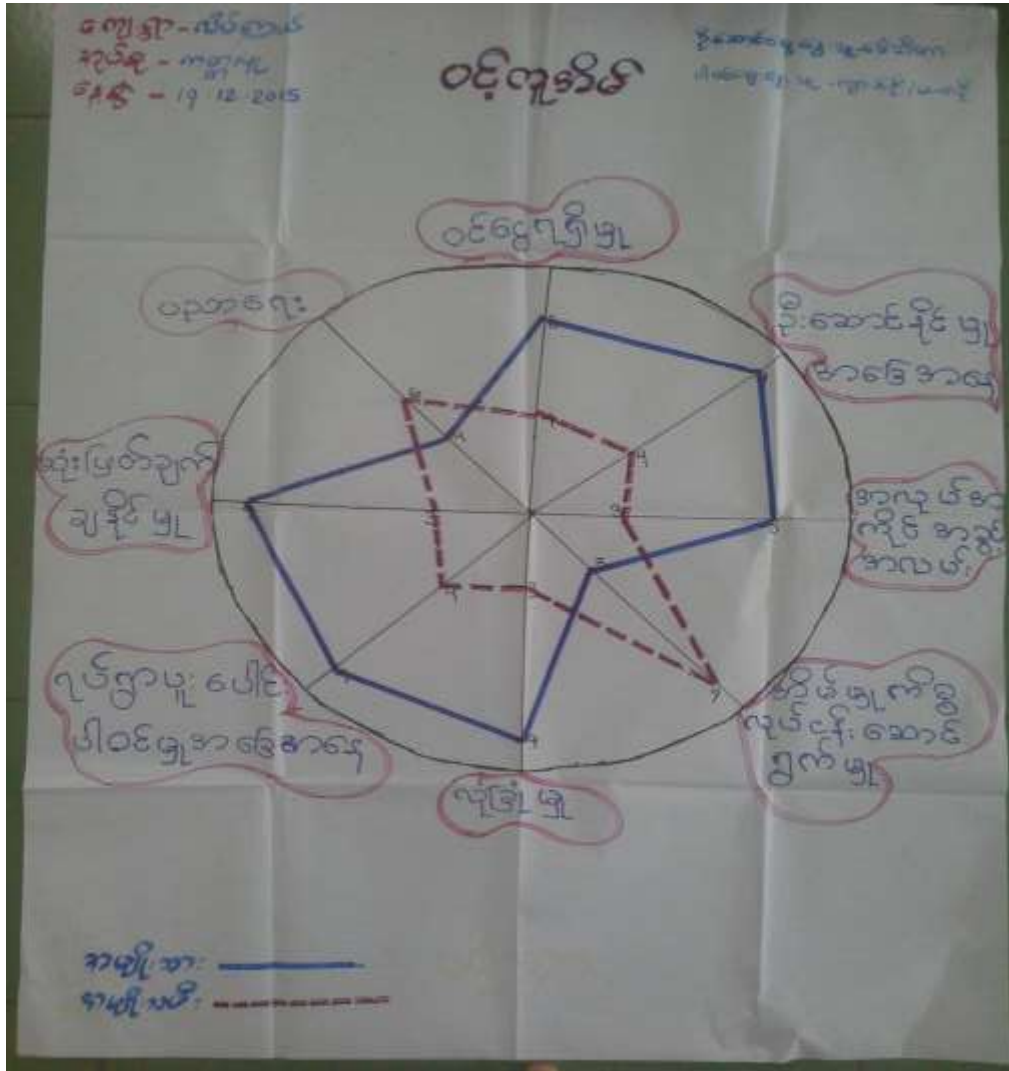 ကျေးရွာ - လိပ်ကြယ်
အုပ်စု -
နေ့စွဲ - 19.12.2015
ပင့်ကူအိမ်
ဝင်ငွေရရှိမှု
ဦးဆောင်နိုင်မှု
အခြေအနေ
အလုပ်အ
ကိုင် အခွင့်
အလမ်း
အိမ်မှုကိစ္စ
လုပ်ငန်းဆောင်
ရွက်မှု
လုံခြုံမှု
ရပ်ရွာပူးပေါင်း
ပါဝင်မှုအခြေအနေ
ဆုံးဖြတ်ချက်
ချနိုင်မှု
ပညာရေး
အမျိုးသား
အမျိုးသမီး